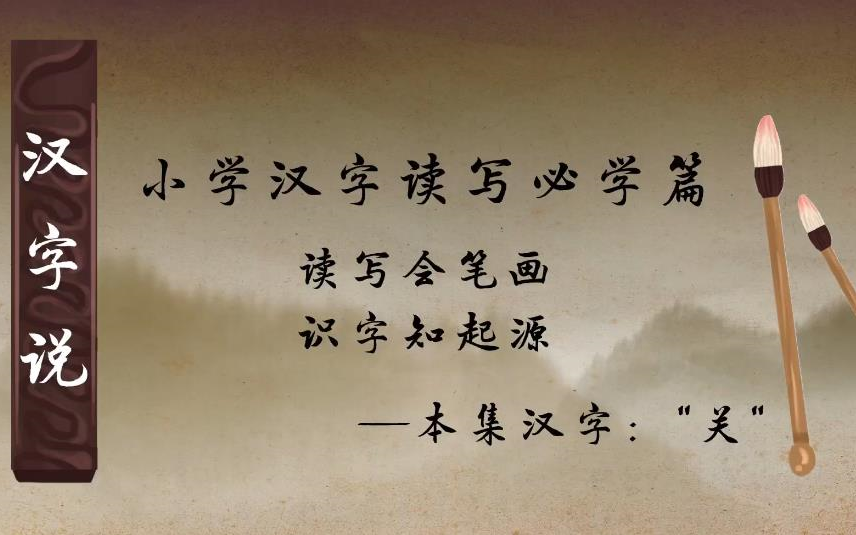 汉字说
小学汉字读写必学篇
读写会笔画
识字知起源
—本集汉字："关"